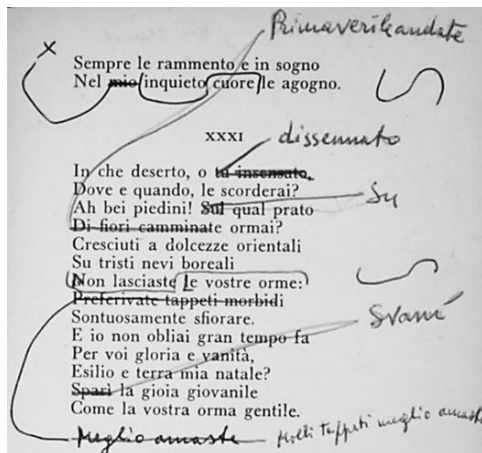 Primaverili andate
Sempre le rammento e in sogno
Nel mio inquieto cuore le agogno.
XXXI
dissennato
In che deserto, o tu insensato,
Dove e quando, le scorderai?
Su
Ah bei piedini! Sul qual prato
Di fiori camminate ormai?
Cresciuti a dolcezze orientali
Su tristi nevi boreali
Non lasciaste le vostre orme:
Preferivate tappeti morbidi
Sontuosamente sfiorare.
Svanì
E io non obliai gran tempo fa
Per voi gloria e vanità,
Esilio e terra mia natale?
Sparì la gioia giovanile
Come la vostra orma gentile.
Meglio amaste Molli tappeti meglio amaste